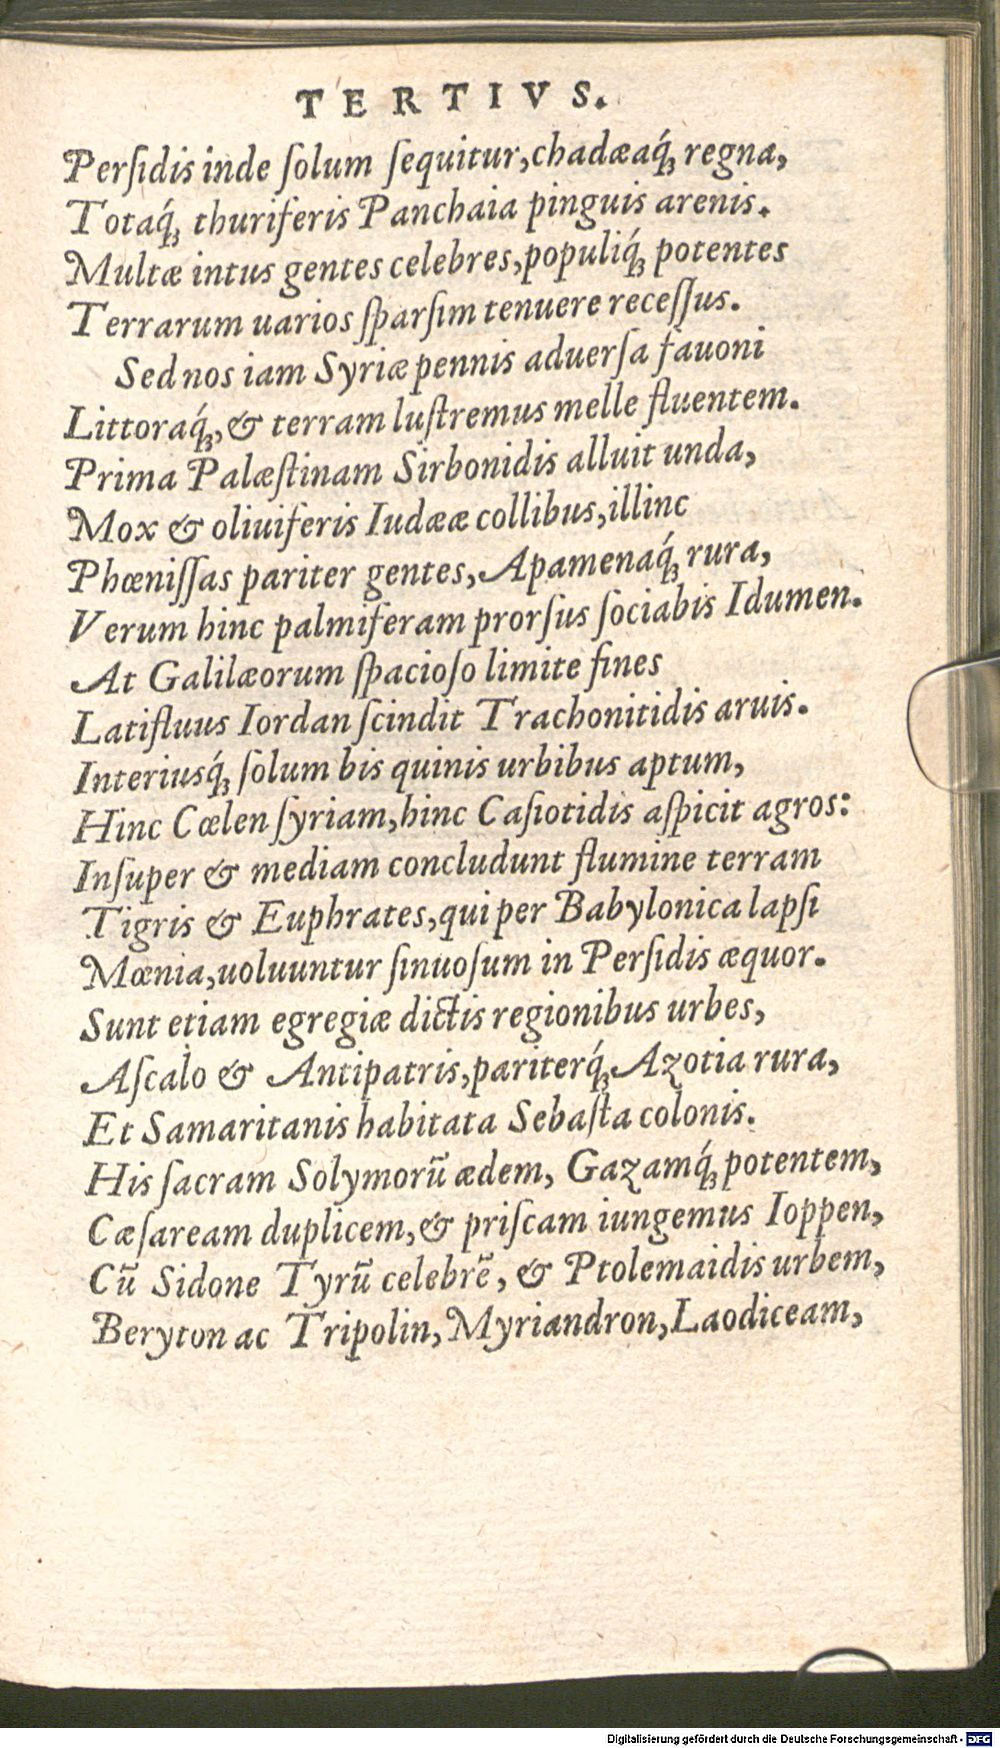 TERTIVS.
Perſidis inde ſolum ſequitur, chadæaq́ꝫ regna,
Totaq́ꝫ thuriferis Panchaia pinguis arenis.
Multæ intus gentes celebres, populiq́ꝫ potentes
Terrarum uarios ſparſim tenuere receſſus.
Sed nos iam Syriæ pennis aduerſa fauoni
Littoraq́ꝫ, & terram luſtremus melle fluentem.
Prima Palæſtinam Sirbonidis alluit unda,
Mox & oliuiferis Iudææ collibus, illinc
Phœniſſas pariter gentes, Apamenaq́ꝫ rura,
Verum hinc palmiferam prorſus ſociabis Idumen.
At Galilæorum ſpacioſo limite fines
Latifluus Iordan ſcindit Trachonitidis aruis.
Interiusq́ꝫ ſolum bis quinis urbibus aptum,
Hinc Cœlen ſyriam, hinc Caſiotidis aſpicit agros:
Inſuper & mediam concludunt flumine terram
Tigris & Euphrates, qui per Babylonica lapſi
Mœnia, uoluuntur ſinuoſum in Perſidis æquor.
Sunt etiam egregiæ dictis regionibus urbes,
Aſcalo & Antipatris, pariterq́ꝫ Azotia rura,
Et Samaritanis habitata Sebaſta colonis.
His ſacram Solymorū ædem, Gazamq́ꝫ potentem,
Cæſaream duplicem, & priſcam iungemus Ioppen,
Cū Sidone Tyrū celebrē, & Ptolemaidis urbem,
Beryton ac Tripolin, Myriandron, Laodiceam,
Digitalisierung gefördert durch die Deutsche Forschungsgemeinschaft - DFG